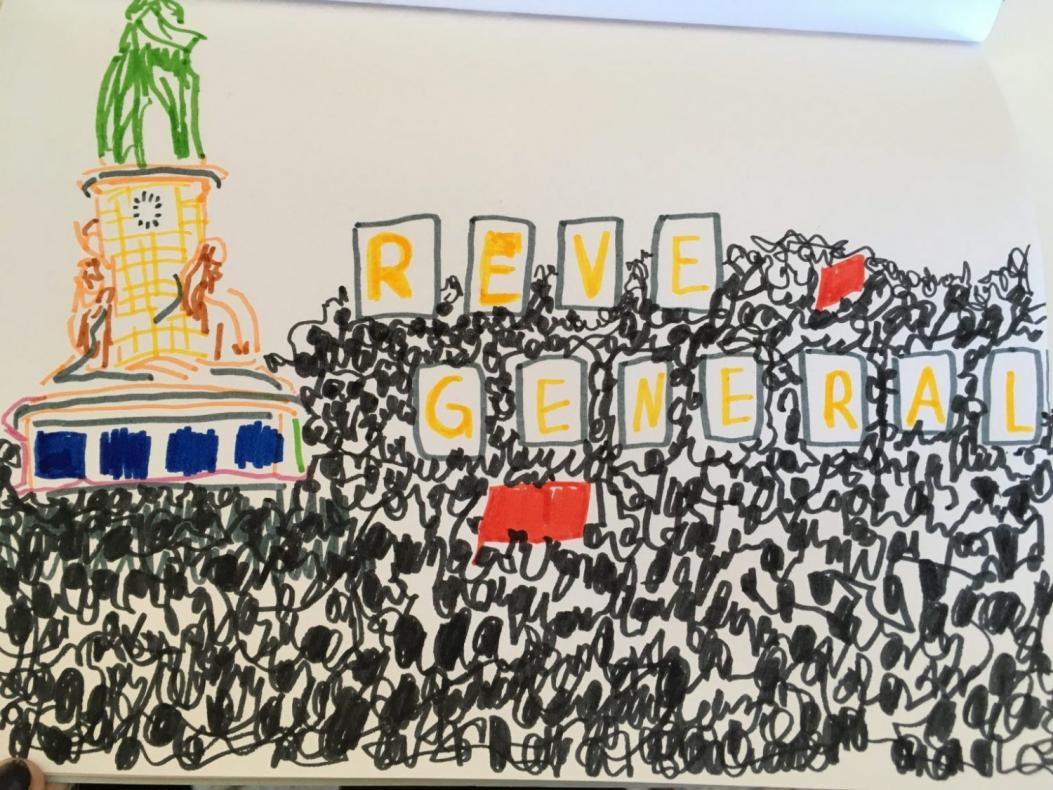 REVE
GENERAL